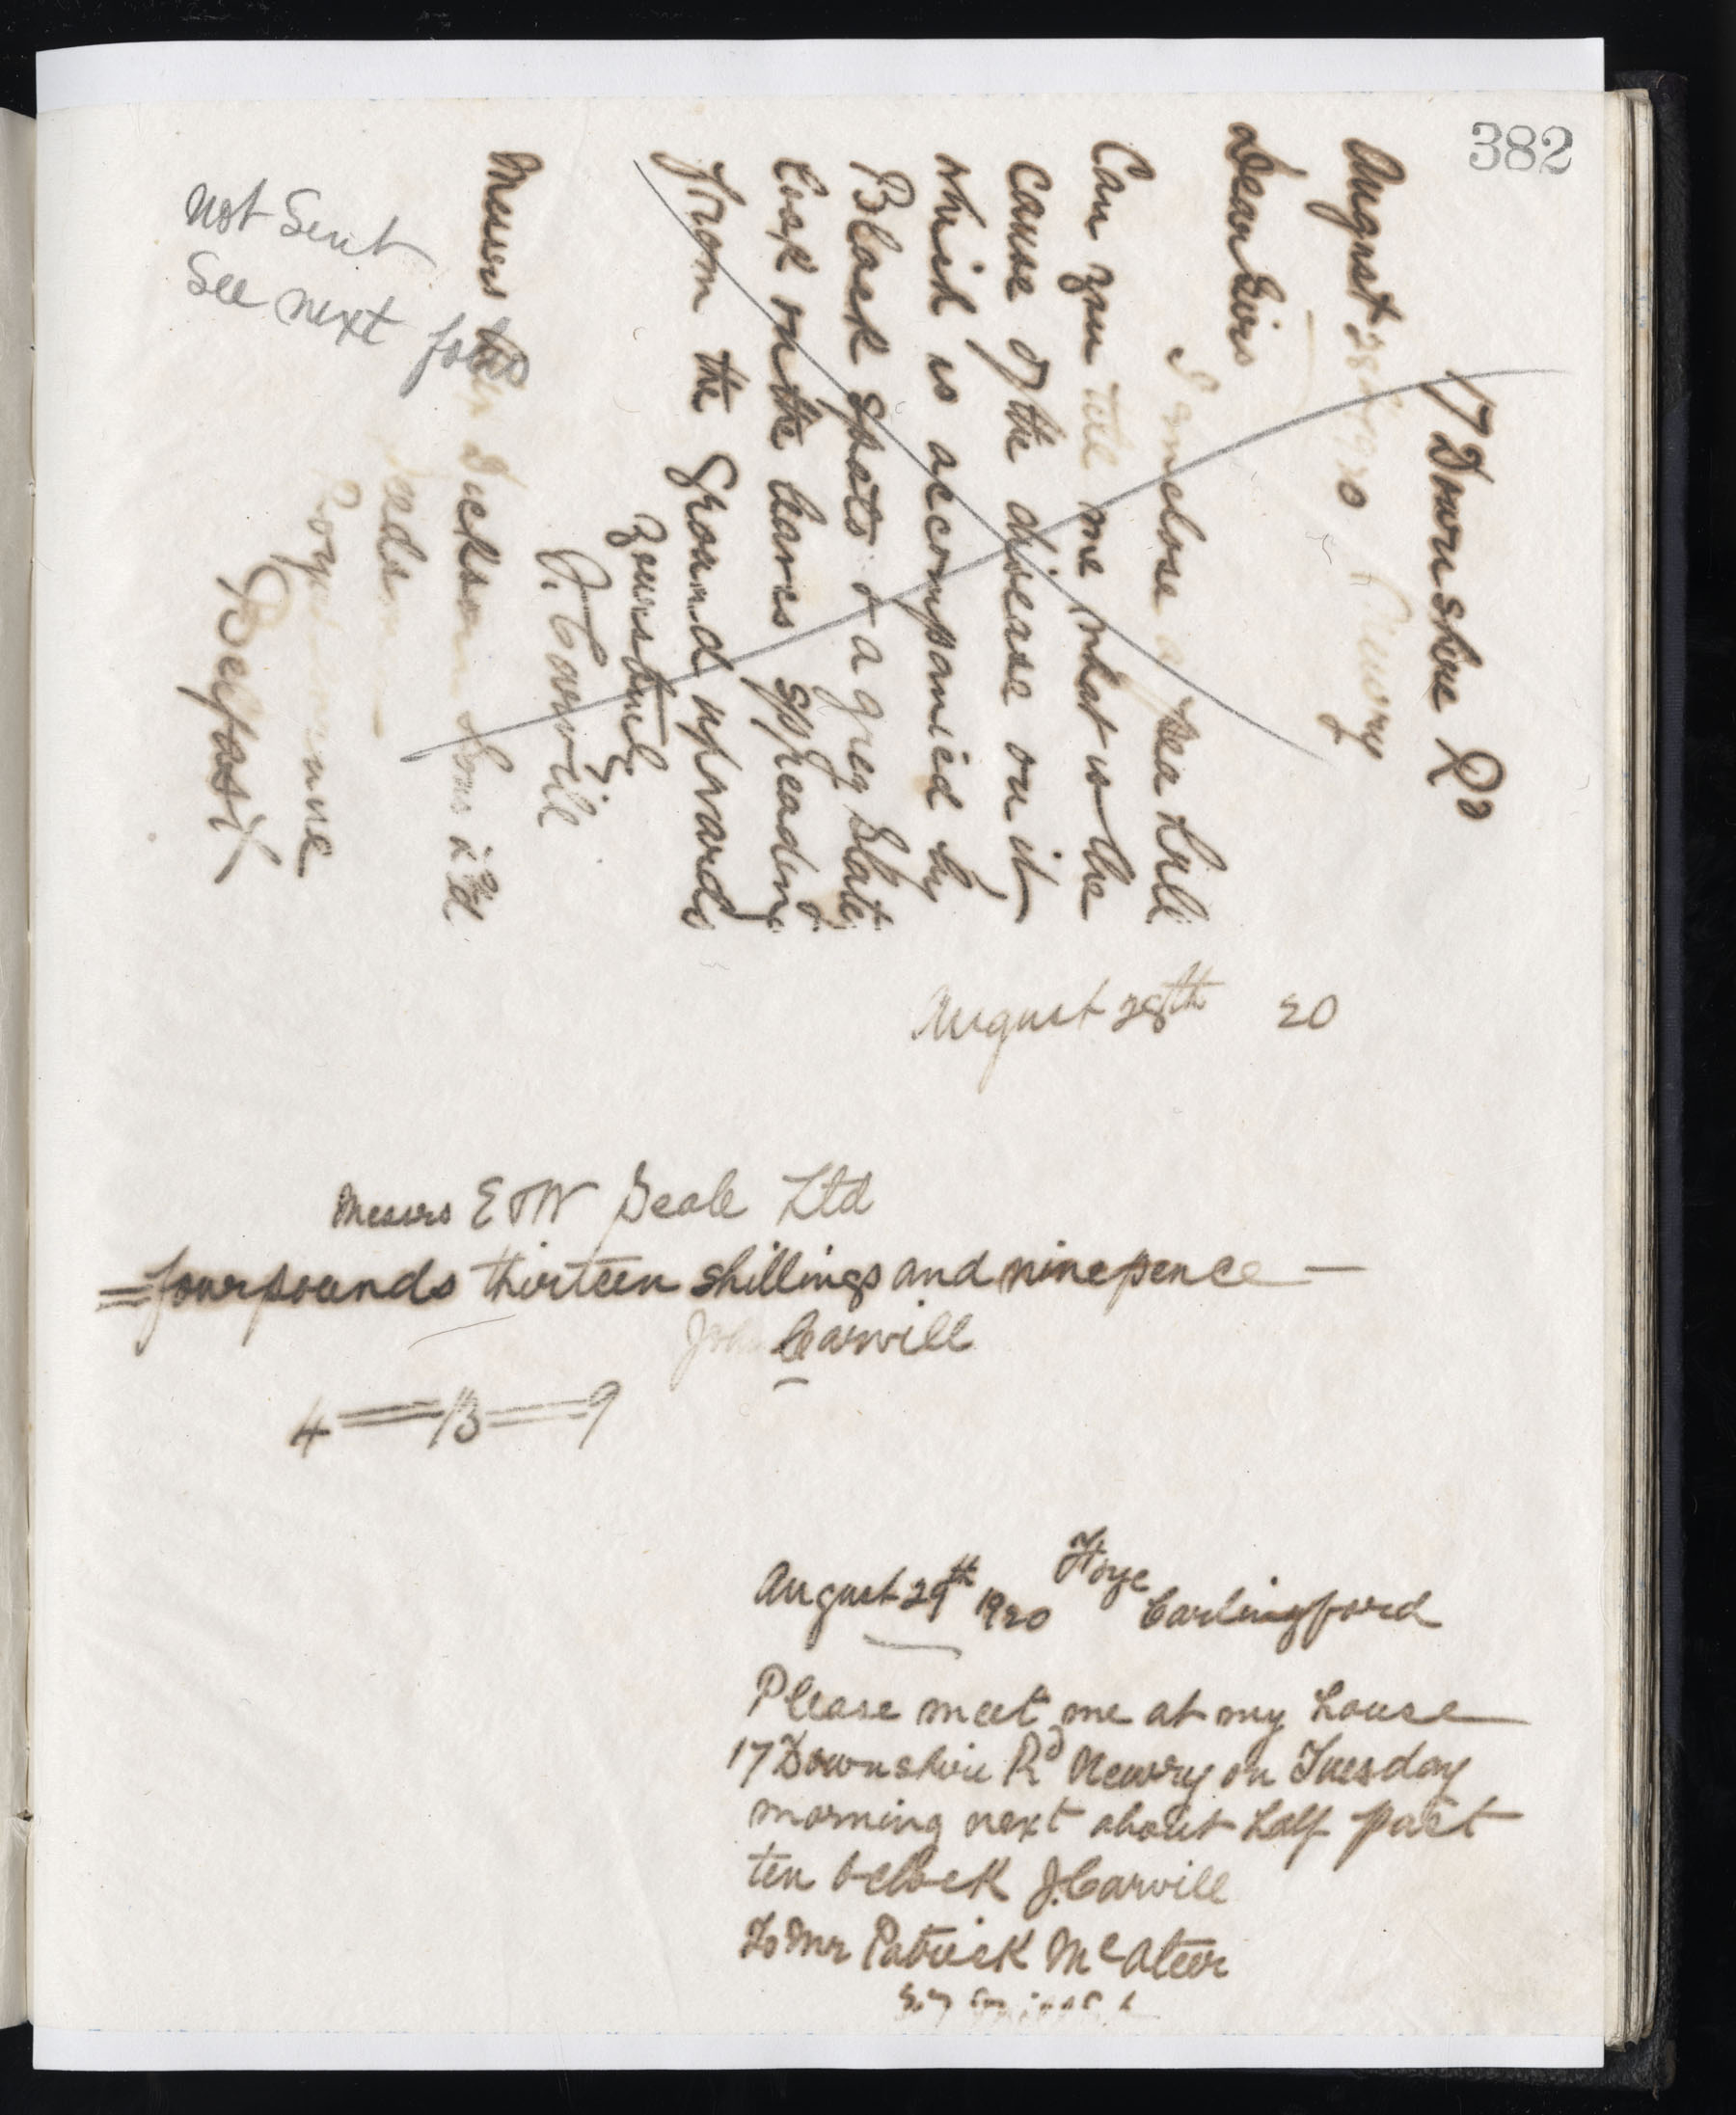 382
17 Downshire Rd
August 28th 1920 Newry
Dear Sirs
I enclose a pea hali
Can you tell me what is the
cause of the disease on it
which is accompanied by
Black spots & a grey slate
look on the leaves spreading
from the Ground upwards
Yours truly
J. Carvill
Messrs Dickson Sons Ltd
Royal
Belfast
Not Sent
See next folio
August 28th 20
Messrs E & W Seale Ltd
= four pounds thirteen shillings and nine pence —
John Carvill
4 = 13 = 9
August 29th 1920 Carlingford
Please meet me at my house
17 Downshire Rd Newry on Tuesday
morning next about half past
ten o'clock J. Carvill
To Mr Patrick McAteer